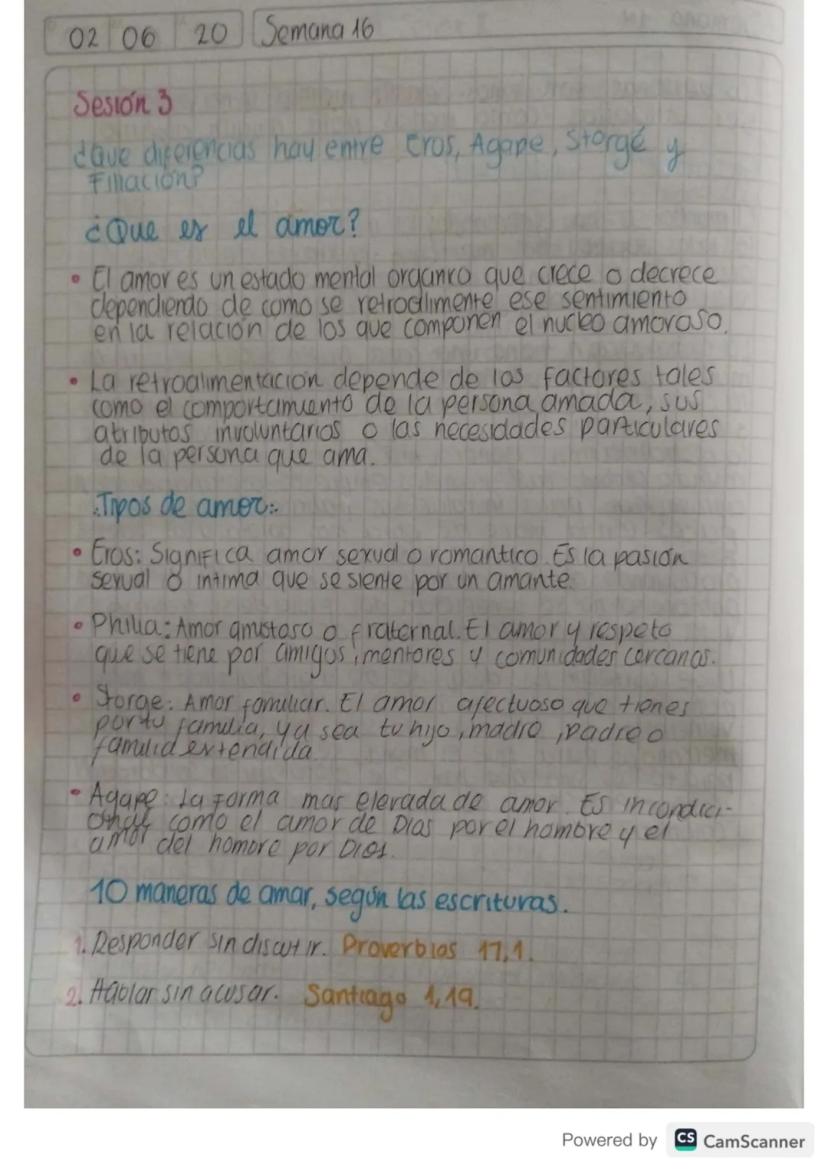 02 06 20 Semana 16
Sesión 3
¿Que diferencias hay entre Eros, Agape, Storgé y
Filiación?
¿Que es el amor?
• El amor es un estado mental organico que crece o decrece
dependiendo de como se retroalimente ese sentimiento
en la relación de los que componen el nucleo amoroso.
• La retroalimentacion depende de los factores tales
como el comportamiento de la persona amada, sus
atributos involuntarios o las necesidades particulares
de la persona que ama.
.:Tipos de amor:.
• Eros: Significa amor sexual o romantico. Es la pasión
sexual o intima que se siente por un amante.
• Philia: Amor amistoso o fraternal. El amor y respeto
que se tiene por amigos, mentores y comunidades cercanas.
• Storge: Amor familiar. El amor afectuoso que tienes
por tu familia, ya sea tu hijo, madre, padre o
familia extendida
• Agape: La forma mas elevada de amor. Es incondici-
onal como el amor de Dios por el hombre y el
amor del hombre por Dios.
10 maneras de amar, según las escrituras.
1. Responder sin discutir. Proverbios 17,1.
2. Hablar sin acusar. Santiago 1,19.
Powered by CS CamScanner